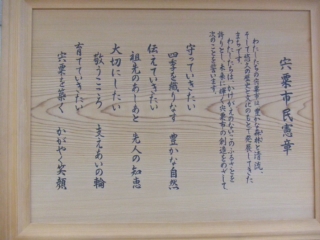 宍粟市民憲章
わたしたちの宍粟市は、豊かな森林と清流、
そして悠久の歴史と文化のもとで発展してきた
まちです。
わたしたちは、かけがえのないこのふるさとを
誇りとし、未来に輝く宍粟市の創造をめざして、
次のことを誓います。
守っていきたい
四季を織りなす 豊かな自然
伝えていきたい
祖先のあしあと 先人の知恵
大切にしたい
敬うこころ 支えあいの輪
育てていきたい
宍粟を築く かがやく笑顔